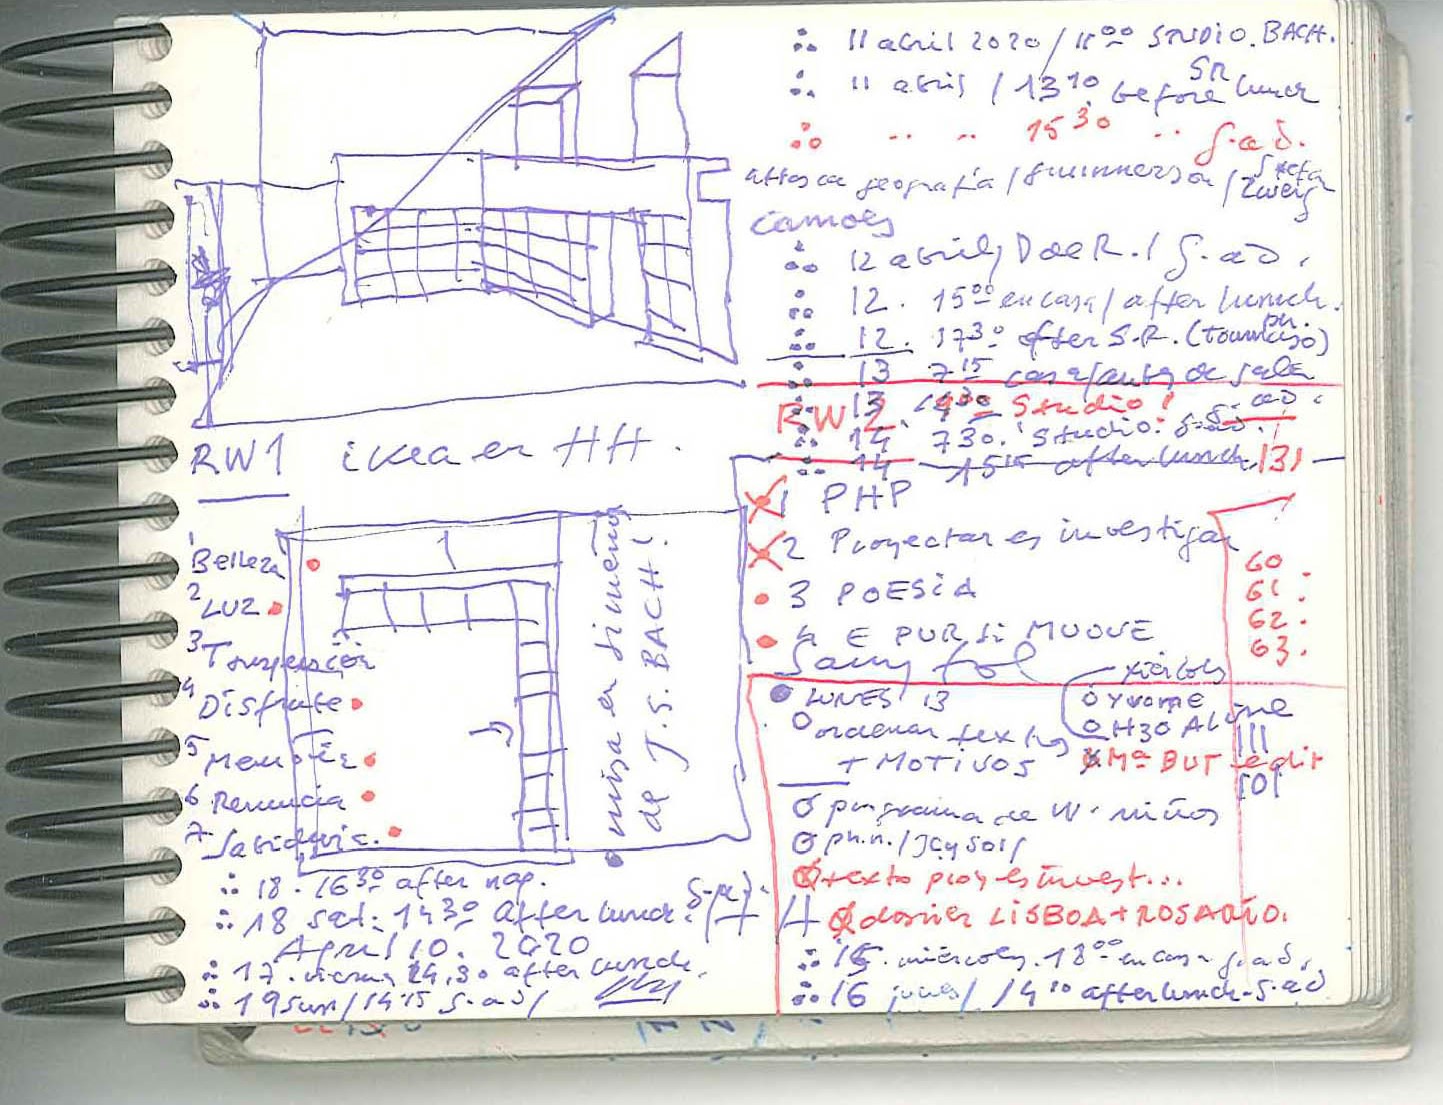 11 abril 2020 / 11⁰⁰ STUDIO. BACH.
11 abril / 13¹⁰ before lunch
SR
15³⁰ S.a.d.
atlas de geografía / Zweig
camoes
12 abril D de R. / S.a.d.
12. 15⁰⁰ en casa / after lunch.
12. 17³⁰ after S.R. (Tommaso)
13 7¹⁵ casa / antes de sala
RW2.
13. Studio!
14 7³⁰. Studio. S.a.d.
14 15¹⁵ after lunch 131
RW1 ikea en HH.
1 PHP
2 Proyectar es investigar
3 POESIA
4 E PUR SI MUOVE
60.
61.
62.
63.
1 Belleza
2 LUZ
3
4 Disfrute
5 Memoria
6 Renuncia
7 Sabiduría.
1
misa en si menor
de J. S. BACH!
LUNES 13
ordenar textos
+ MOTIVOS
Yvonne
H3O Aline
Mª BUT edit
programa de W. niños
ph.n. /
texto proy es invest...
dossier LISBOA + ROSARIO.
15. miércoles. 18⁰⁰ en casa S.a.d.
16 jueves / 14¹⁰ after lunch S.a.d
18. 16³⁰ after nap.
18 sat. 14³⁰ after lunch.
April 10. 2020
17. viernes 14,30 after lunch.
19 sun / 14¹⁵ S.a.d /